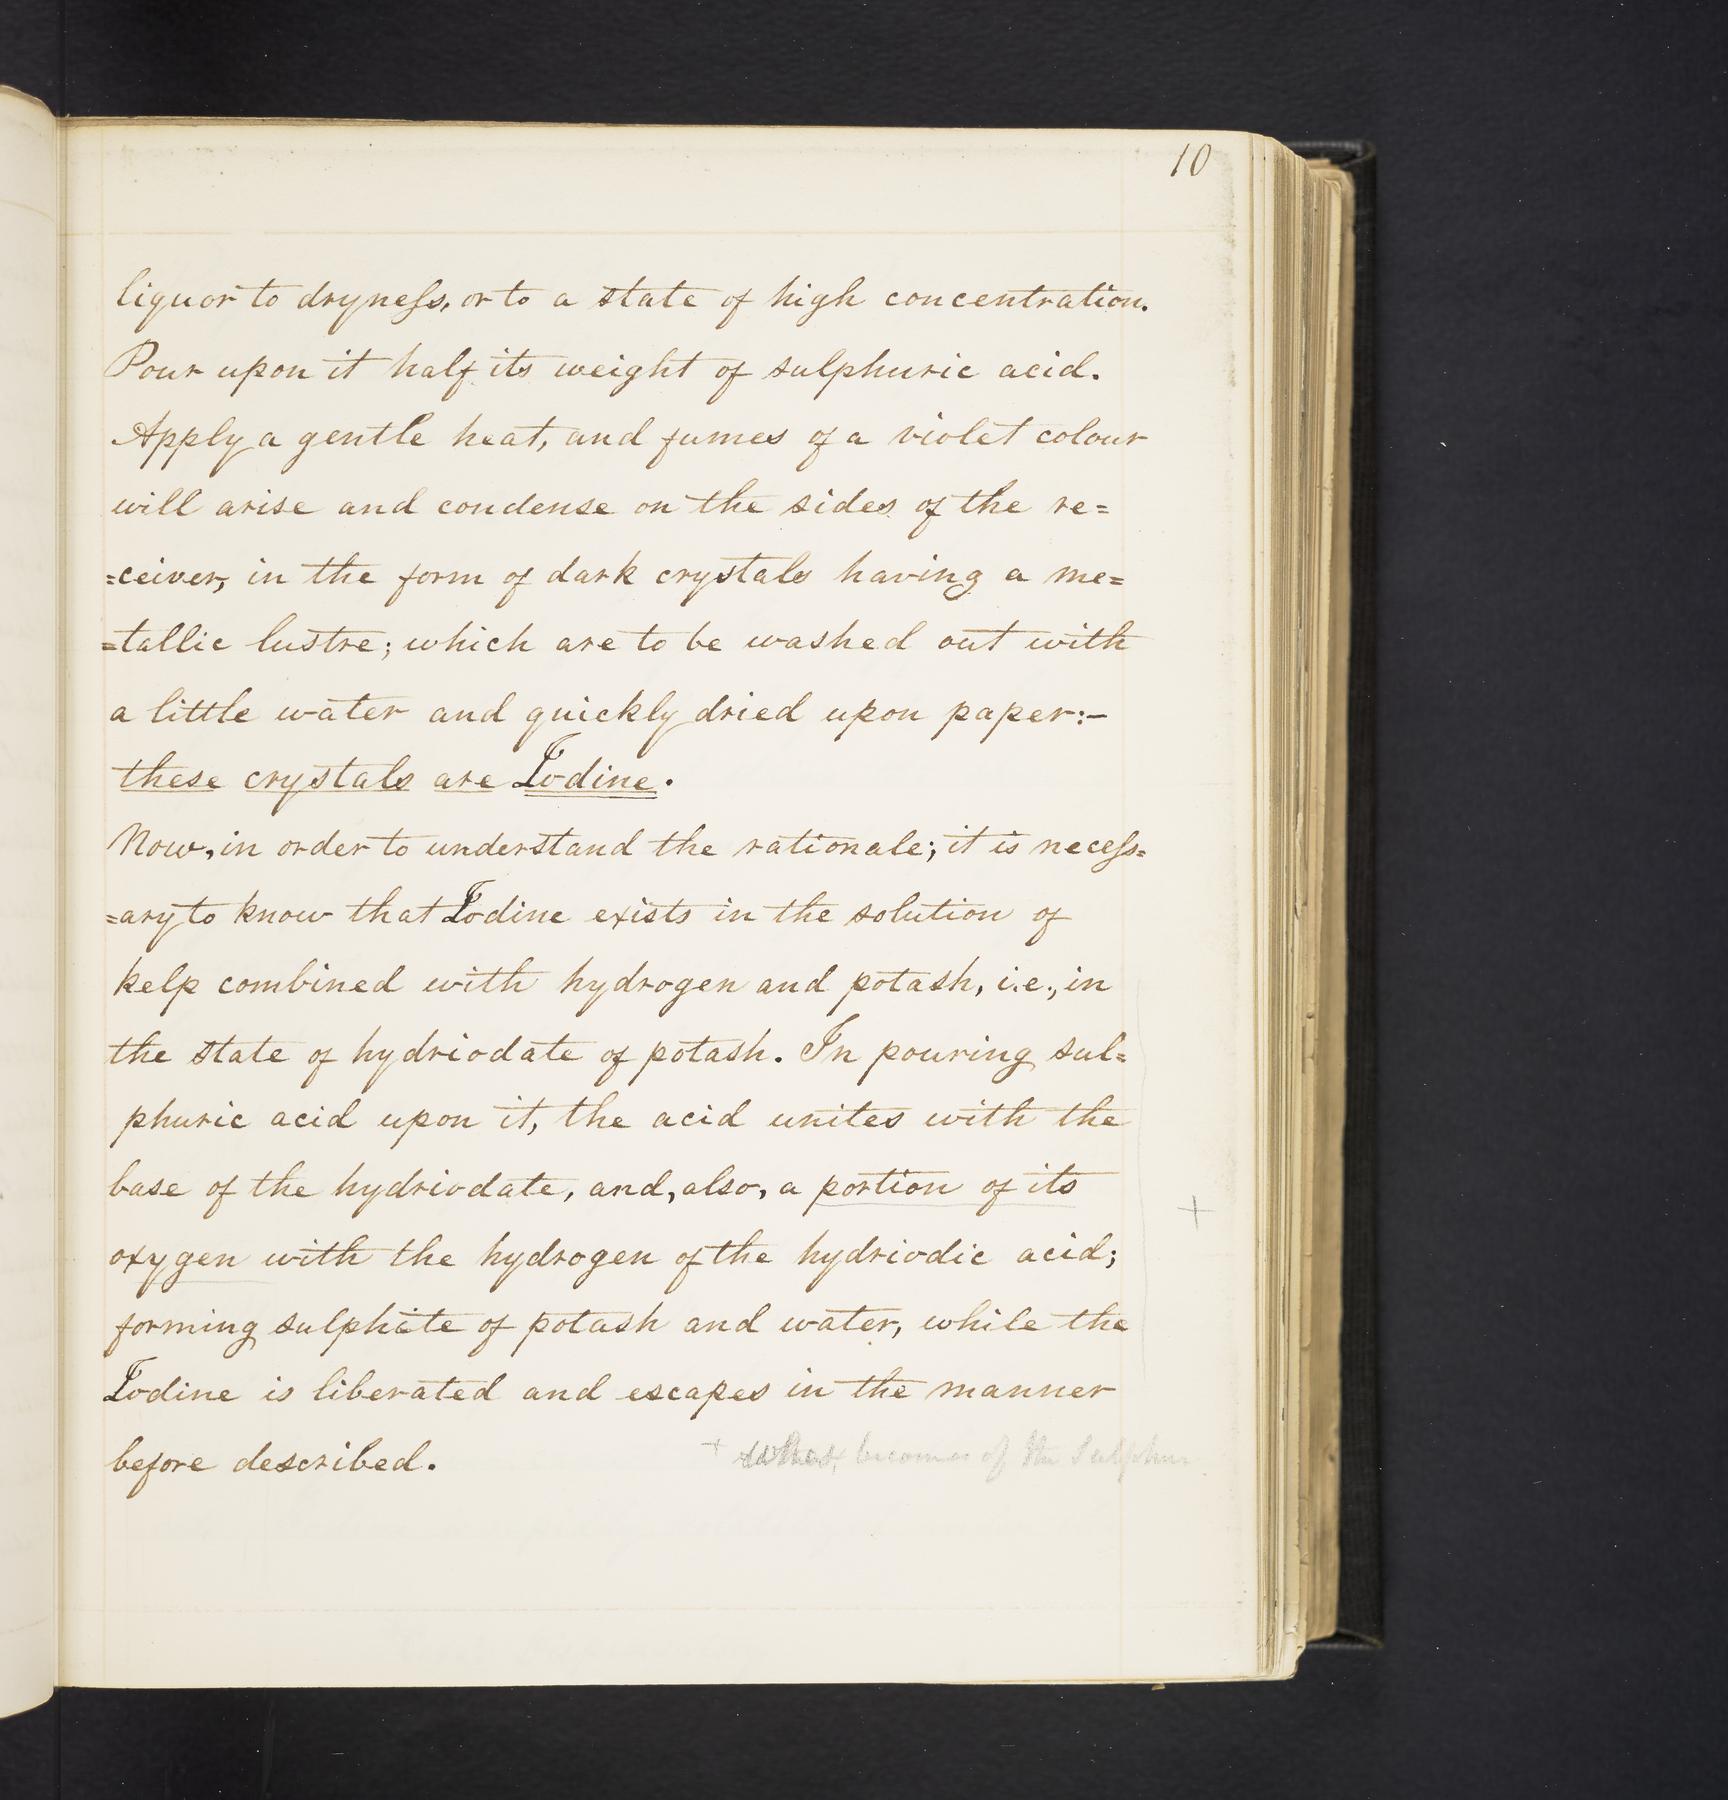 10
liquor to dryneſs, or to a state of high concentration.
Pour upon it half its weight of sulphuric acid.
Apply a gentle heat, and fumes of a violet colour
will arise and condense on the sides of the re=
=ceiver, in the form of dark crystals having a me=
=tallic lustre; which are to be washed out with
a little water and quickly dried upon paper:–
these crystals are Iodine.
Now, in order to understand the rationale; it is neceſs=
=ary to know that Iodine exists in the solution of
kelp combined with hydrogen and potash, i.e., in
the state of hydriodate of potash. In pouring sul=
phuric acid upon it, the acid unites with the
base of the hydriodate, and, also, a portion of its
+
oxygen with the hydrogen of the hydriodic acid;
forming sulphite of potash and water, while the
Iodine is liberated and escapes in the manner
before described.
+ becomes of the Sulphur